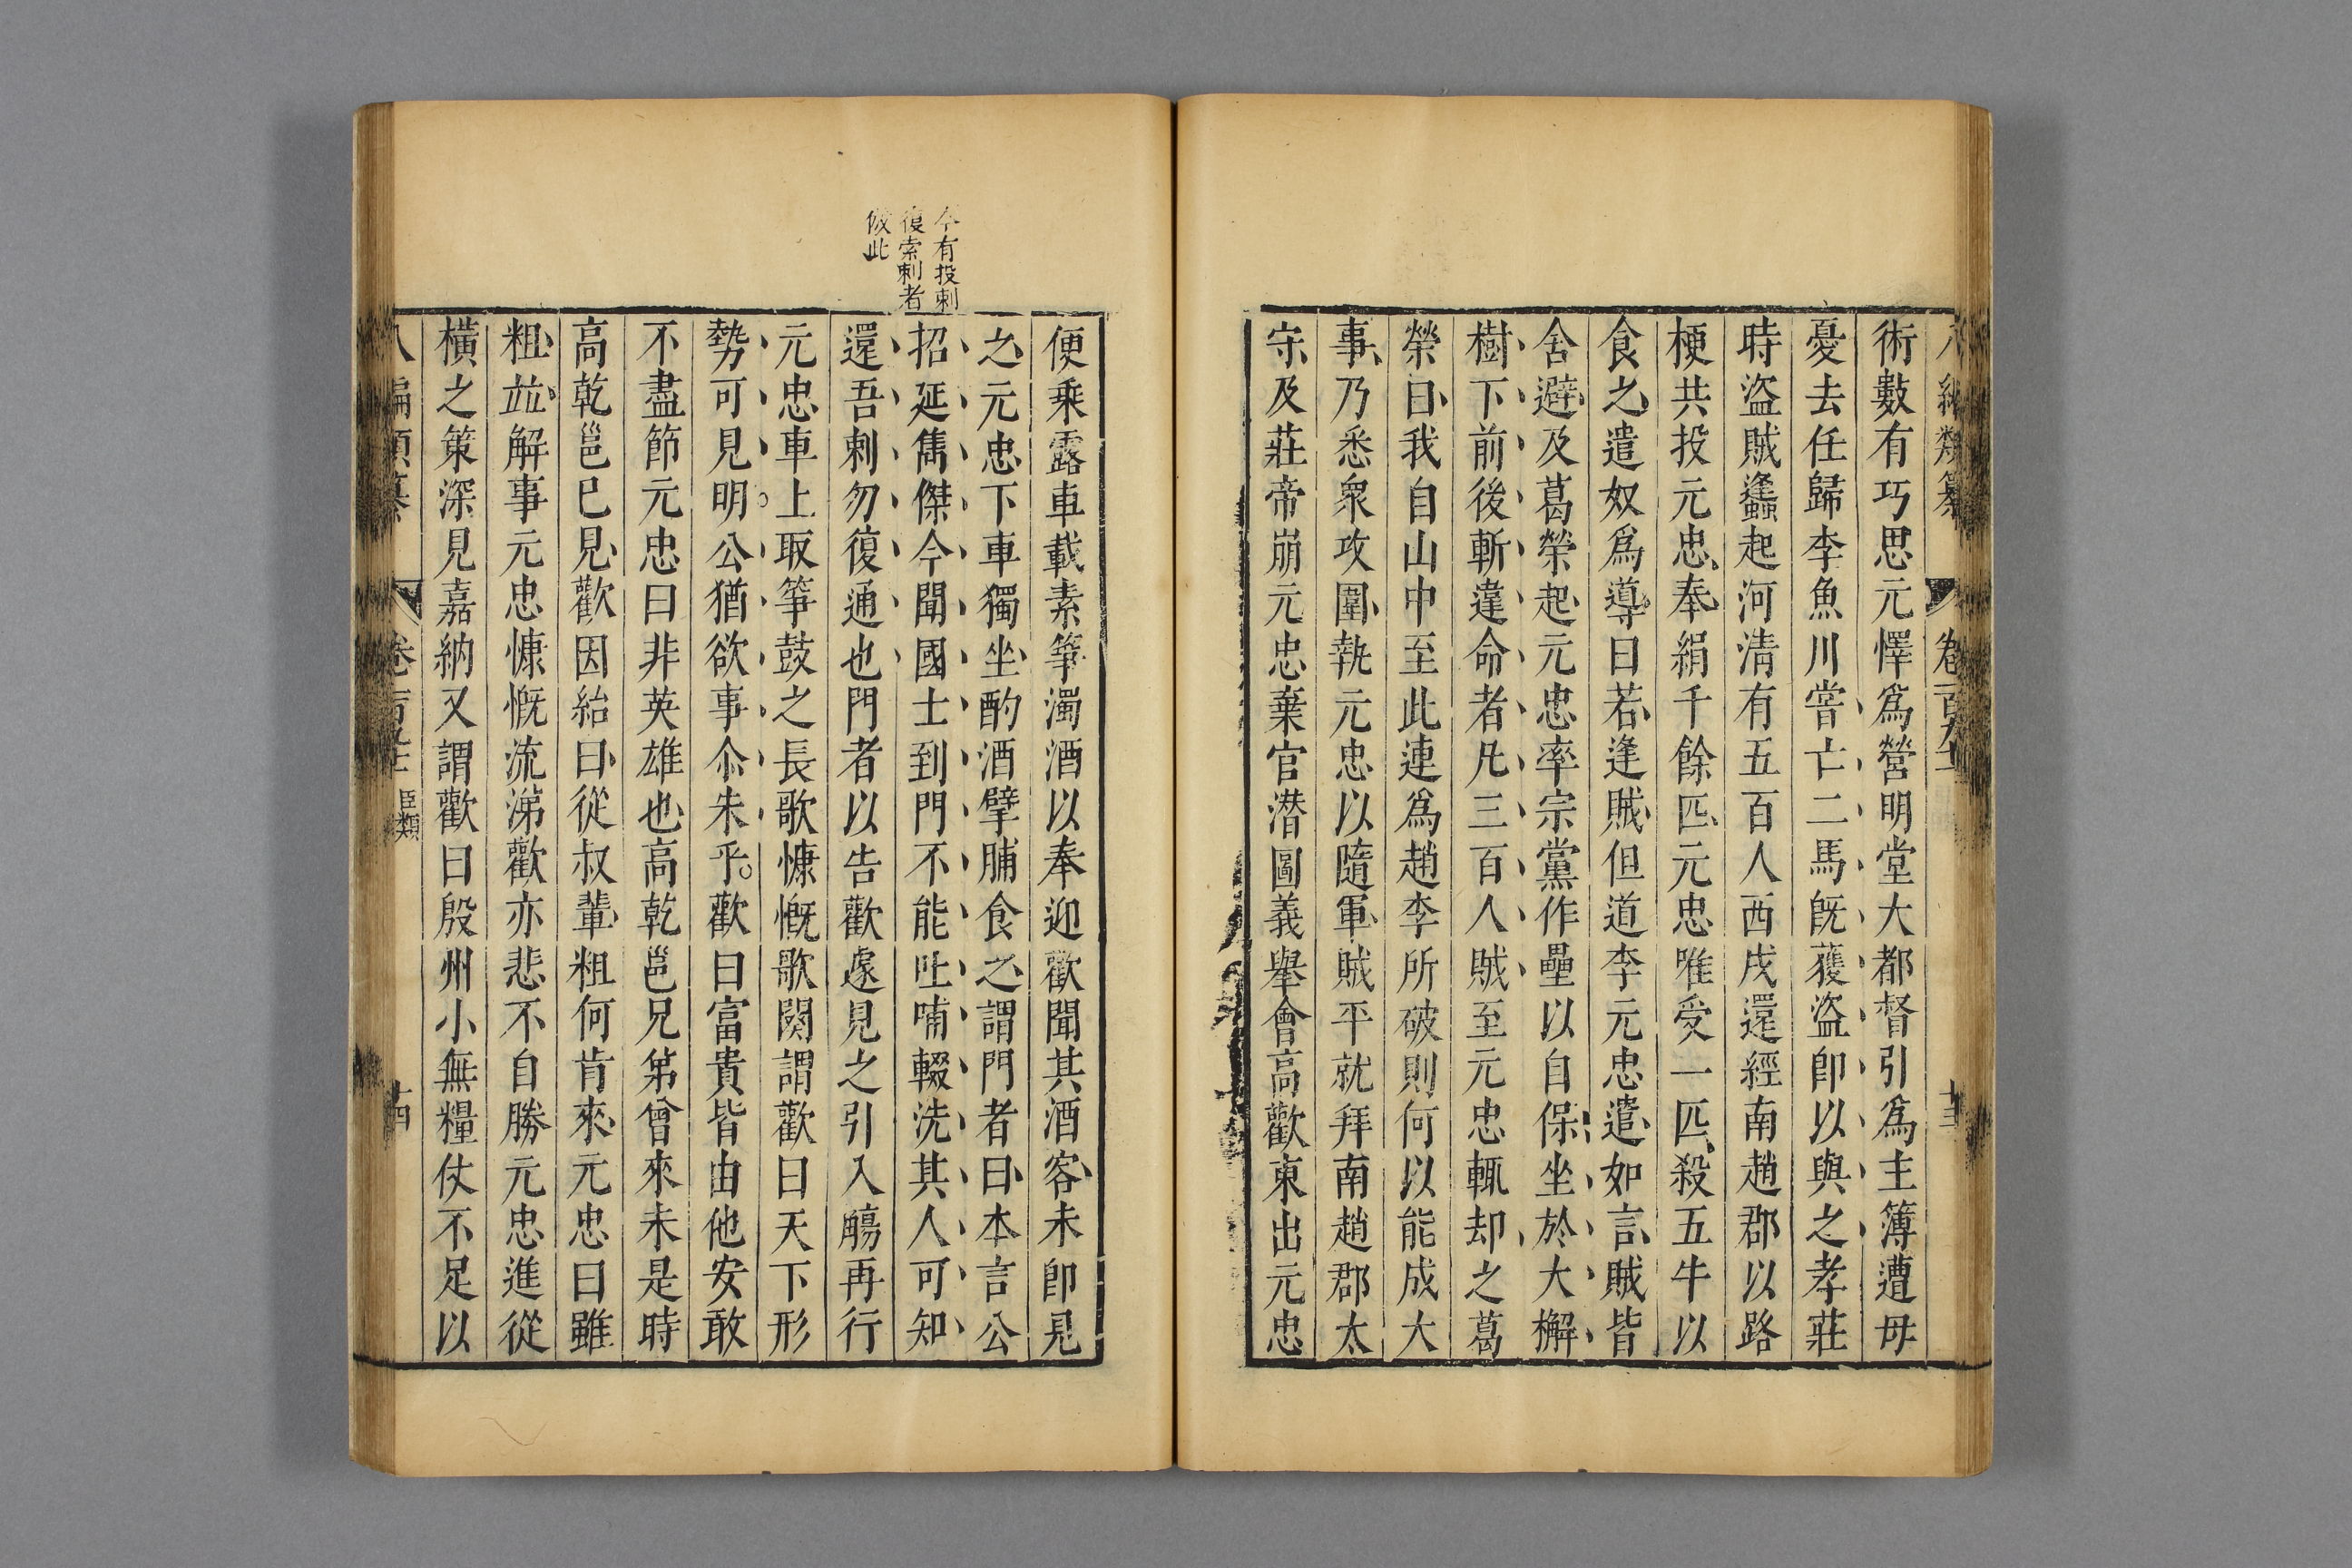 術數有巧思元懌爲營明堂大都督引爲主簿遭母
憂去任歸李魚川嘗亡二馬旣獲盜卽以與之孝莊
時盜賊蠭起河淸有五百人西戍還經南趙郡以路
梗共投元忠奉絹千餘匹元忠唯受一匹殺五牛以
食之遣奴爲導曰若逢賊但道李元忠遣如言賊皆
舍避及葛榮起元忠率宗黨作壘以自保坐於大檞
樹下前後斬違命者凡三百人賊至元忠輒却之葛
榮曰我自山中至此連爲趙李所破則何以能成大
事乃悉衆攻圍執元忠以隨軍賊平就拜南趙郡太
守及莊帝崩元忠棄官潛圖義舉會高歡東出元忠
今有投刺
復索刺者
倣此
便乘露車載素筝濁酒以奉迎歡聞其酒客未卽見
之元忠下車獨坐酌酒擘脯食之謂門者曰本言公
招延雋傑今聞國士到門不能吐哺輟洗其人可知
還吾刺勿復通也門者以告歡遽見之引入觴再行
元忠車上取筝鼓之長歌慷慨歌闋謂歡曰天下形
勢可見明公猶欲事尒朱乎。歡曰富貴皆由他安敢
不盡節元忠曰非英雄也高乾邕兄弟曾來未是時
高乾邕已見歡因紿曰從叔輩粗何肯來元忠曰雖
粗並解事元忠慷慨流涕歡亦悲不自勝元忠進從
橫之策深見嘉納又謂歡曰殷州小無糧仗不足以